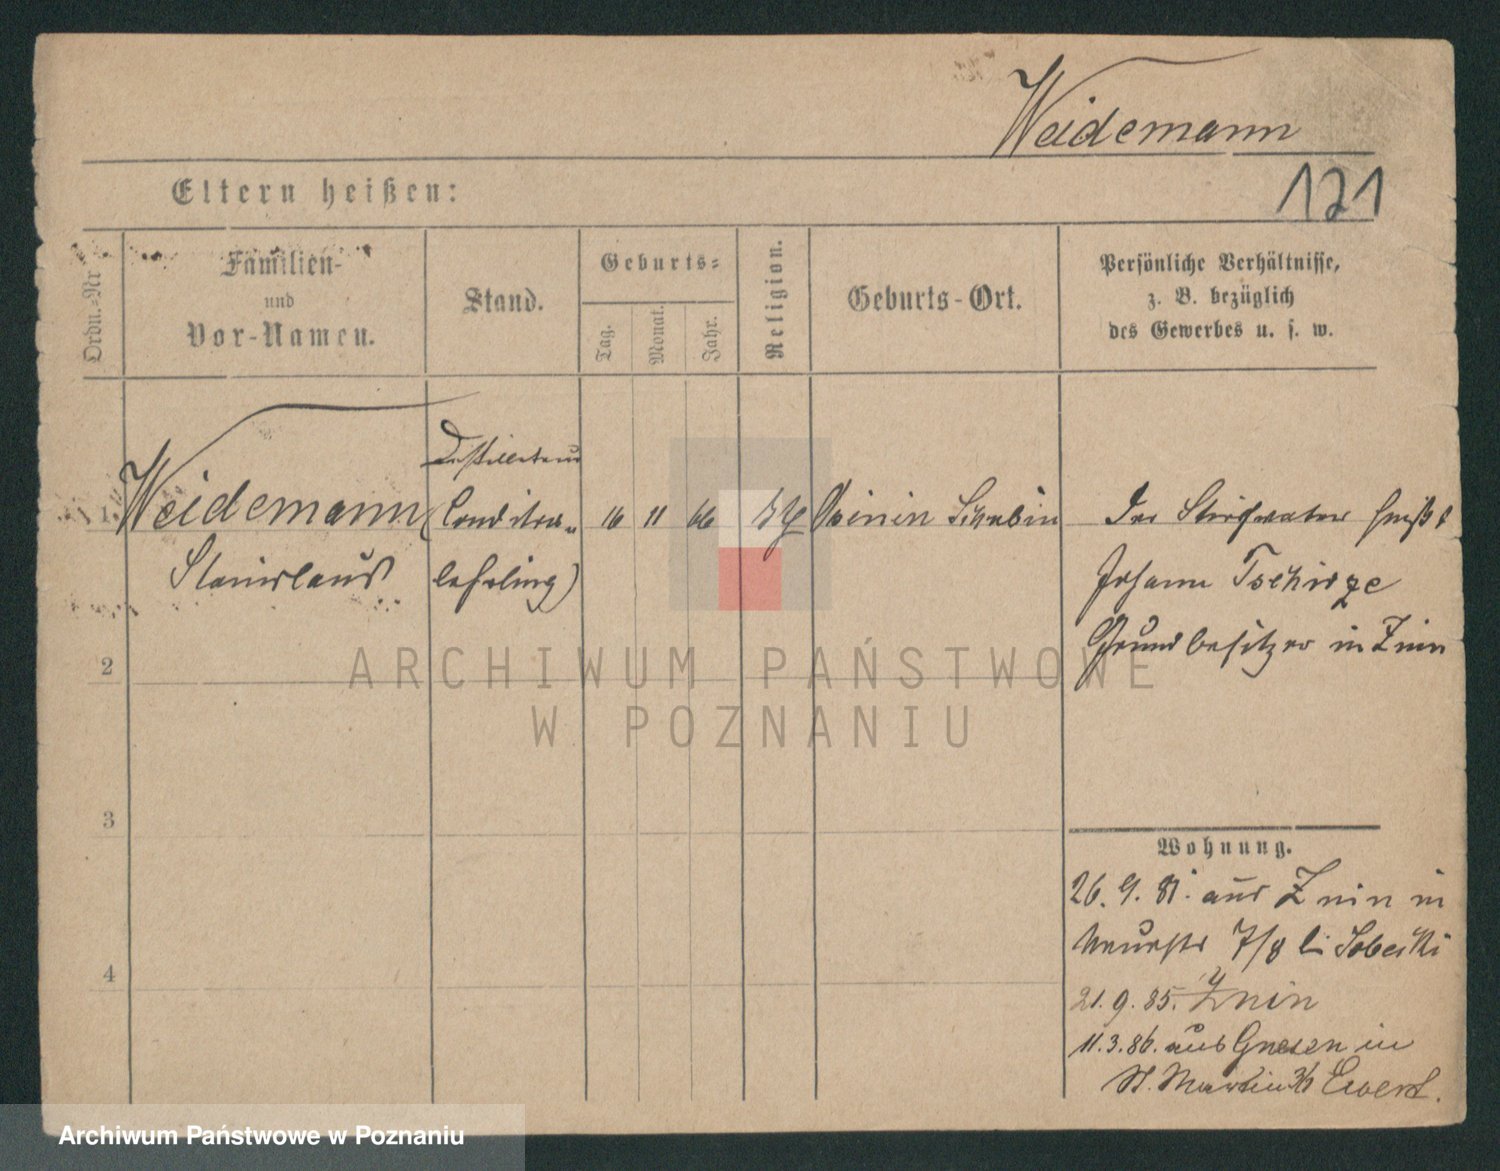 Weidemann
121
Eltern heißen:
Ordn.-Nr
Familien-
und
Vor-Namen.
Stand.
Geburts-
Tag.
Monat.
Jahr.
Religion.
Geburts-Ort.
Persönliche Verhältnisse,
z. B. bezüglich
des Gewerbes u. s. w.
1
Weidemann
Stanislaus
(Conditor-
lehrling)
16 11 66
Schubin
Der Stiefvater heißt
Johann Tschirze
Grundbesitzer in Znin
2
3
4
Wohnung.
26. 9. 81. aus Znin in
Neuestr 7/8 bei Sobecki
21. 9. 85. Znin
11. 3. 86. aus Gnesen in
St. Martin Ewert.
ARCHIWUM PAŃSTWOWE
W POZNANIU
Archiwum Państwowe w Poznaniu